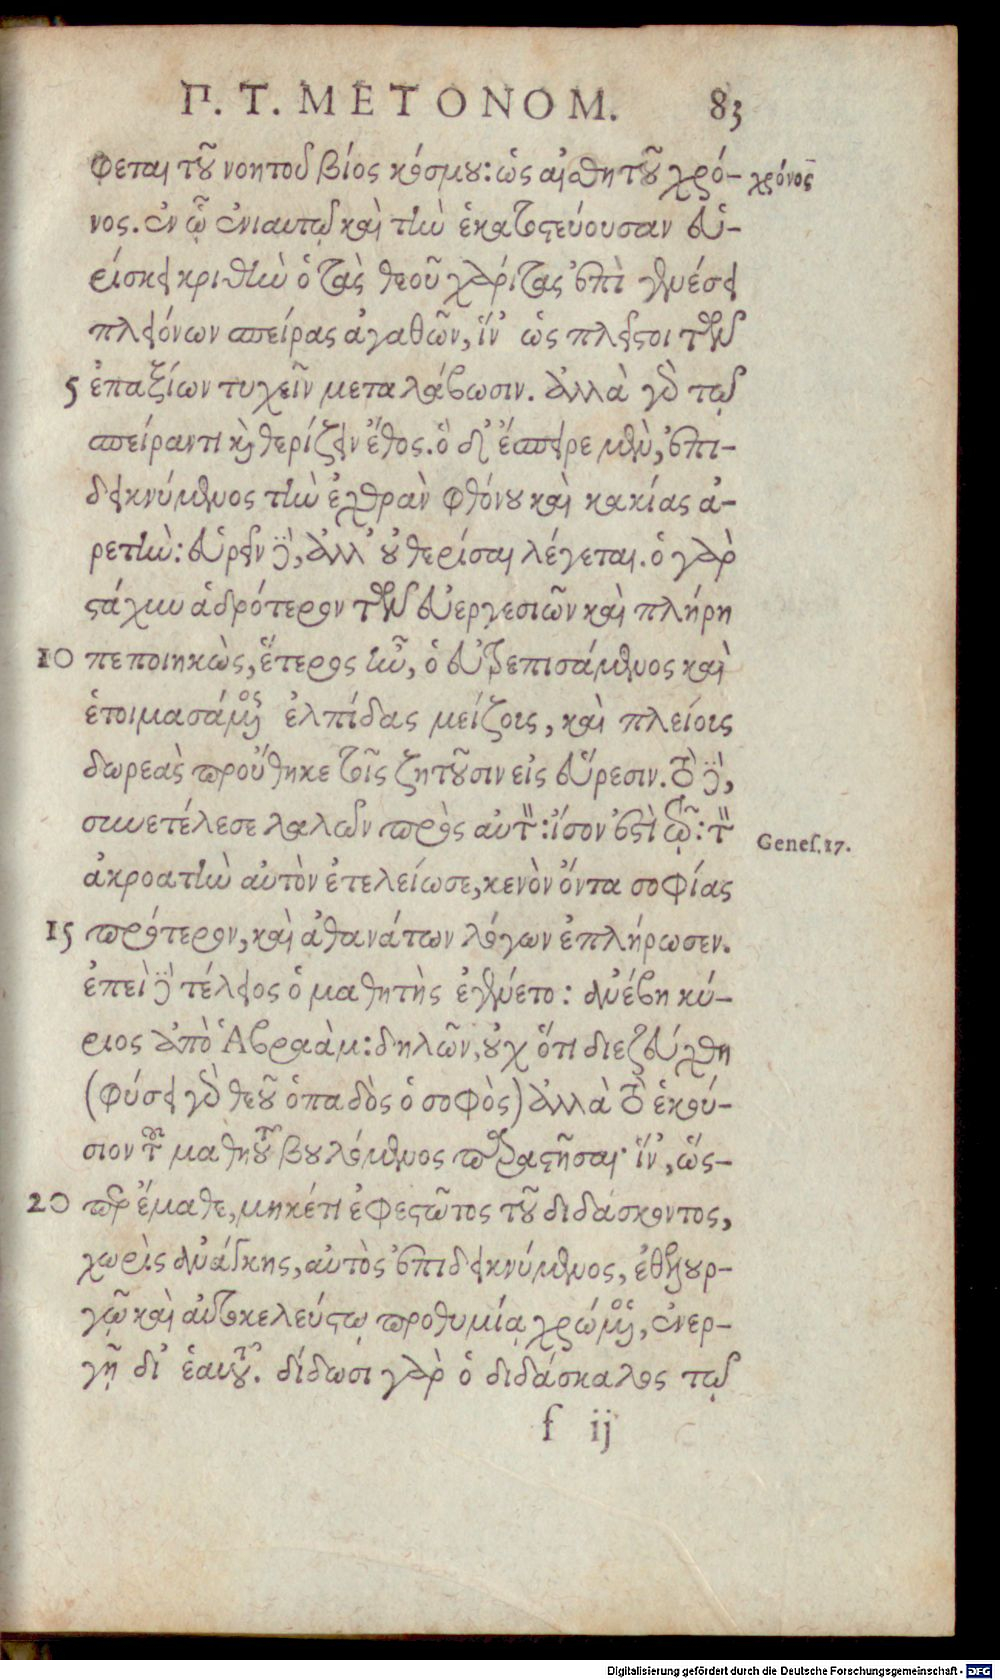 Π. Τ. ΜΕΤΟΝΟΜ. 83
φεται τοῦ νοητοῦ βίος κόσμου: ὡς αἰσθητοῦ χρό-
χρόνος
νος. ἐν ᾧ ἐνιαυτῷ καὶ τὴν ἑκατοστεύουσαν εὑ-
ρίσκει κριθὴν ὁ τὰς θεοῦ χάριτας ἐπὶ γενέσει
πλειόνων σπείρας ἀγαθῶν, ἵν' ὡς πλεῖστοι τῶν
5 ἐπαξίων τυχεῖν μεταλάβωσιν. ἀλλὰ γὰρ τῷ
σπείραντι καὶ θερίζειν ἔθος. ὁ δὲ ἔσπειρε μὲν, ἐπι-
δεικνύμενος τὴν ἐχθρὰν φθόνου καὶ κακίας ἀ-
ρετὴν: εὑρεῖν δὲ, ἀλλ' οὐ θερίσαι λέγεται. ὁ γὰρ
στάχυν ἁδρότερον τῶν εὐεργεσιῶν καὶ πλήρη
10 πεποιηκὼς, ἕτερος ἦν, ὁ εὐτρεπισάμενος καὶ
ἑτοιμασάμενος ἐλπίδας μείζους, καὶ πλείους
δωρεὰς προὔθηκε τοῖς ζητοῦσιν εἰς εὕρεσιν. τὸ δὲ,
συνετέλεσε λαλῶν πρὸς αὐτὸν: ἴσον ἐστὶ τῷ: τὸν
Genes. 17.
ἀκροατὴν αὐτὸν ἐτελείωσε, κενὸν ὄντα σοφίας
15 πρότερον, καὶ ἀθανάτων λόγων ἐπλήρωσεν.
ἐπεὶ δὲ τέλειος ὁ μαθητὴς ἐγένετο: ἀνέβη κύ-
ριος ἀπὸ Ἁβραὰμ: δηλῶν, οὐχ ὅτι διεζεύχθη
(φύσει γὰρ θεοῦ ὀπαδὸς ὁ σοφὸς) ἀλλὰ τὸ ἑκού-
σιον τοῦ μαθητοῦ βουλόμενος παραστῆσαι· ἵν', ὥς-
20 περ ἔμαθε, μηκέτι ἐφεστῶτος τοῦ διδάσκοντος,
χωρὶς ἀνάγκης, αὐτὸς ἐπιδεικνύμενος, ἐθελουρ-
γῷ καὶ αὐτοκελεύστῳ προθυμίᾳ χρώμενος, ἐνερ-
γῇ δι' ἑαυτοῦ. δίδωσι γὰρ ὁ διδάσκαλος τῷ
f ij
Digitalisierung gefördert durch die Deutsche Forschungsgemeinschaft - DFG